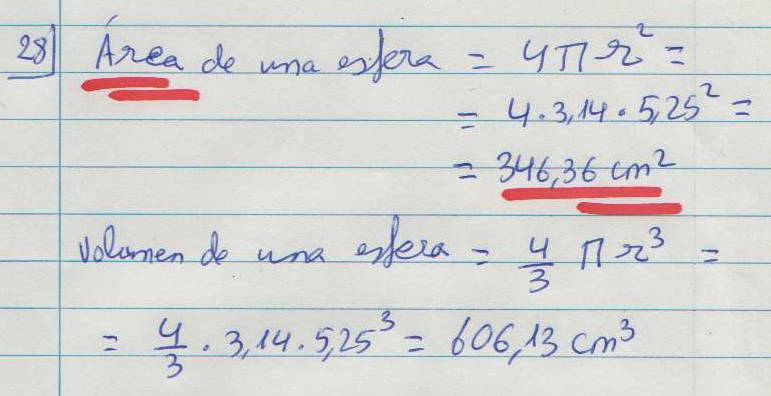 28| Área de una esfera = 4πr² =
= 4·3,14·5,25² =
= 346,36 cm²
Volumen de una esfera = 4/3 πr³ =
= 4/3 · 3,14 · 5,25³ = 606,13 cm³